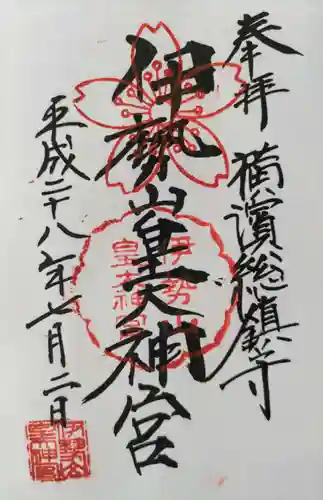 奉拝
横濱総鎮守
伊勢山皇大神宮
平成二十八年七月二日
伊勢山
皇大神宮